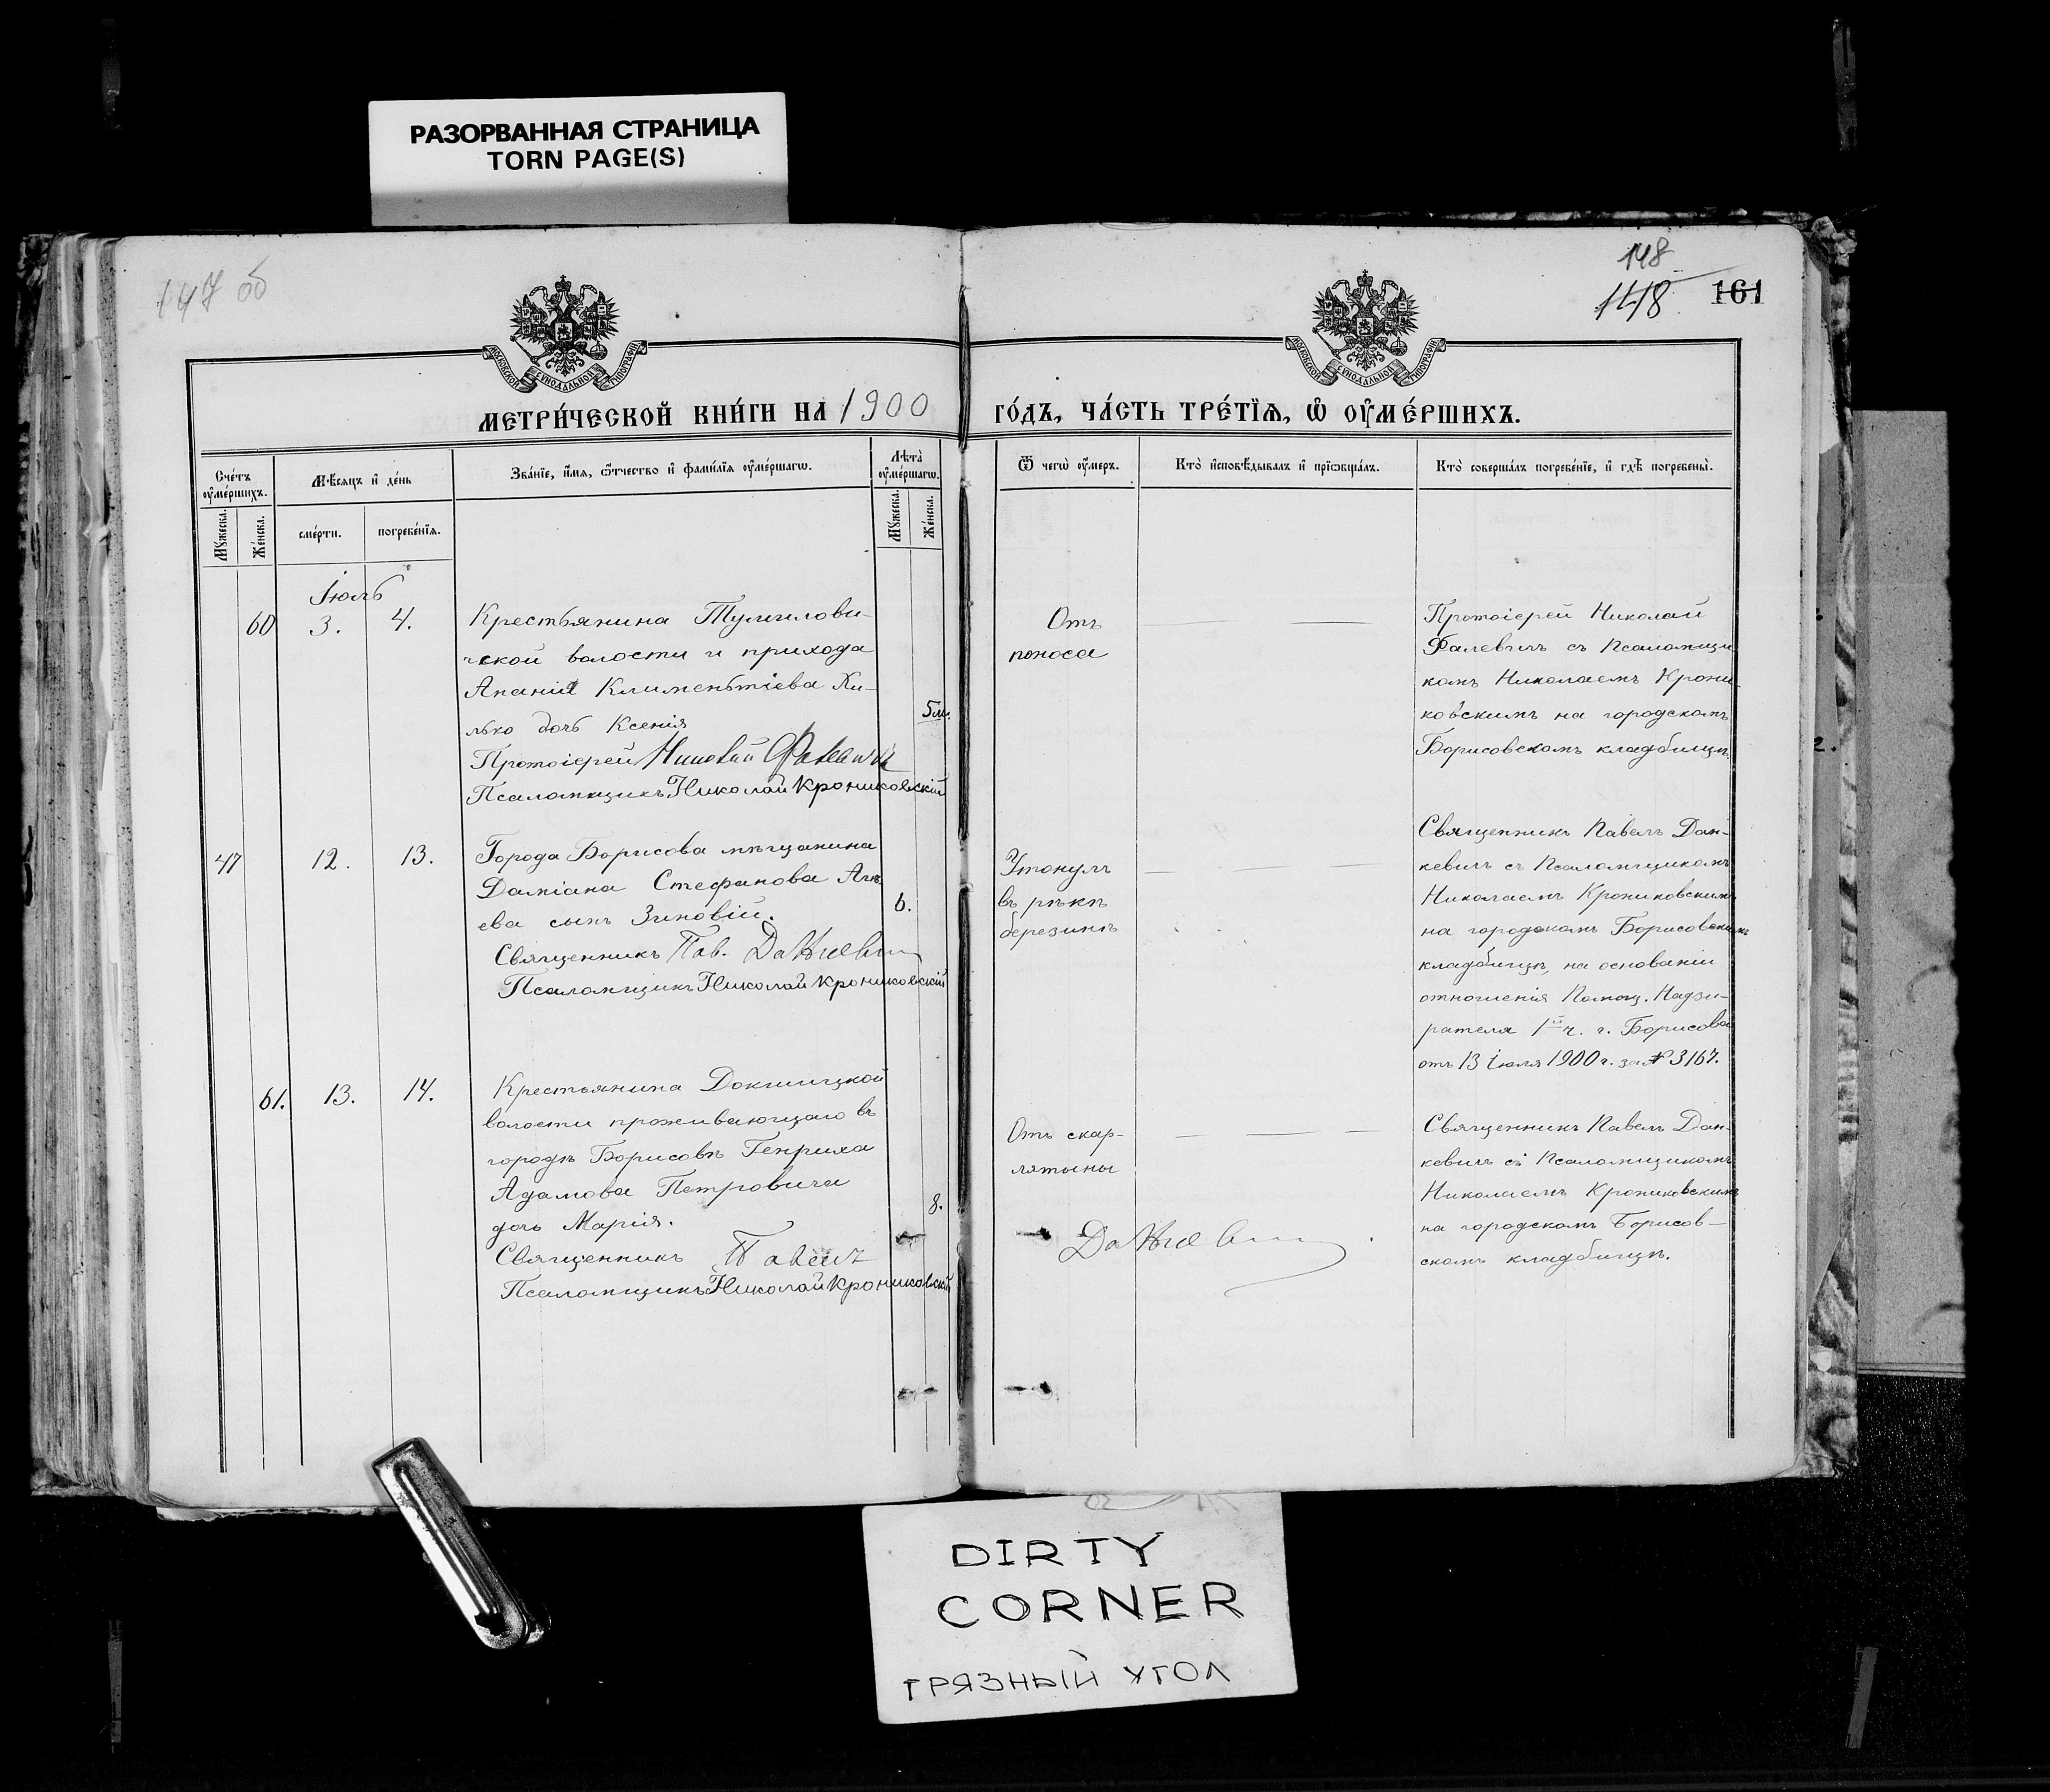 РАЗОРВАННАЯ СТРАНИЦА
TORN PAGE(S)
147 об
148
148
161
МОСКОВСКОЙ СѴНОДАЛЬНОЙ ТИПОГРАФІИ
МОСКОВСКОЙ СѴНОДАЛЬНОЙ ТИПОГРАФІИ
МЕТРИ́ЧЕСКОЙ КНИ́ГИ НА 1900
ГО́ДЪ, ЧА́СТЬ ТРЕ́ТЇѦ, Ѡ҆ ОУ҆МЕ́РШИХЪ.
Сче́тъ оу҆ме́ршихъ.
Мѣ́сѧцъ и҆ де́нь
Зва́нїе, и҆́мѧ, ѻ҆́тчество и҆ фами́лїѧ оу҆ме́ршагѡ.
Лѣ́та̀ оу҆ме́ршагѡ.
Мꙋ́жеска.
Же́нска.
сме́рти.
погребе́нїѧ.
Мꙋ́жеска.
Же́нска.
Ѿ чегѡ̀ оу҆́меръ.
Кто̀ и҆сповѣ́дывалъ и҆ прїѡбща́лъ.
Кто̀ соверша́лъ погребе́нїе, и҆ гдѣ̀ погребены̀.
Іюль
60
3.
4.
Крестьянина Тумилови-
чской волости и прихода
Ананія Климентіева Хи-
лько дочь Ксенія
5 м.
Протоіерей Николай Фалевичъ
Псаломщикъ Николай Крониковскій
Отъ
поноса
Протоіерей Николай
Фалевичъ съ Псаломщи-
комъ Николаемъ Крони-
ковскимъ на городскомъ
Борисовскомъ кладбищѣ.
47
12.
13.
Города Борисова мѣщанина
Даміана Стефанова
ева сынъ Зиновій.
6.
Священникъ Пав. Данкевичъ
Псаломщикъ Николай Крониковскій
Утонулъ
въ рѣкѣ
березинѣ
Священникъ Павелъ Дан-
кевичъ съ Псаломщикомъ
Николаемъ Крониковскимъ
на городскомъ Борисовскомъ
кладбищѣ, на основаніи
отношенія Помощ. Надзи-
рателя 1й ч. г. Борисова
отъ 13 Іюля 1900 г. за № 3167.
61.
13.
14.
Крестьянина Докшицкой
волости проживающаго въ
городѣ Борисовѣ Генриха
Адамова Петровича
дочь Марія.
8.
Священникъ Павелъ
Данкевичъ
Псаломщикъ Николай Крониковскій
Отъ скар-
лятыны
Священникъ Павелъ Дан-
кевичъ съ Псаломщикомъ
Николаемъ Крониковскимъ
на городскомъ Борисов-
скомъ кладбищѣ.
DIRTY
CORNER
ГРЯЗНЫЙ УГОЛ